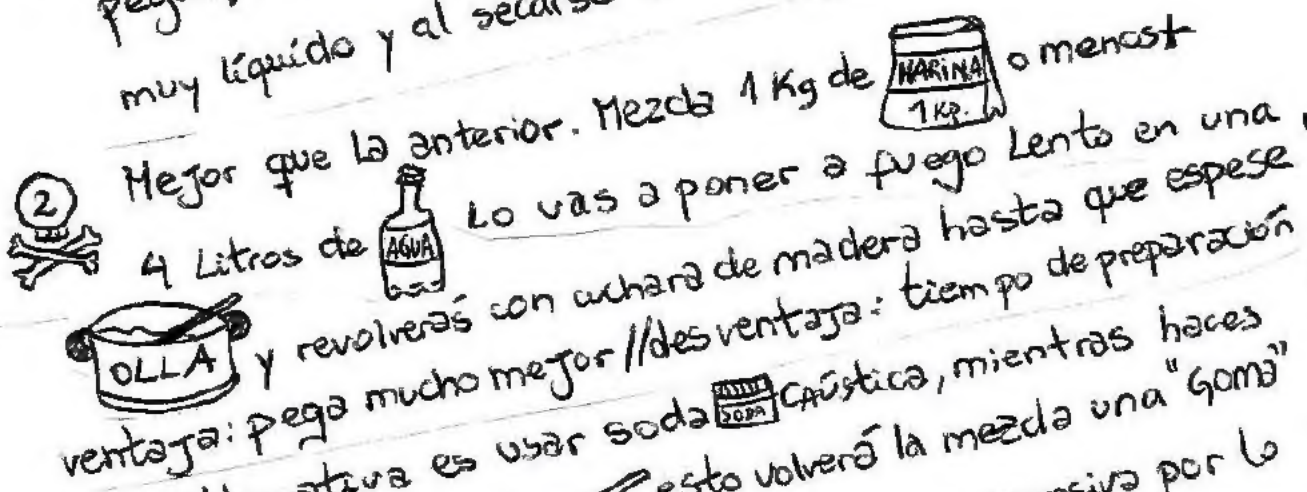 muy líquido y al secarse
② Mejor que la anterior. Mezcla 1 Kg de HARINA 1 KG. o menos +
4 Litros de AGUA Lo vas a poner a fuego Lento en una
OLLA y revolverás con cuchara de madera hasta que espese
ventaja: pega mucho mejor // desventaja: tiempo de preparación
es usar soda SODA CAÚSTICA, mientras haces
esto volverá la mezcla una "Goma"
por lo